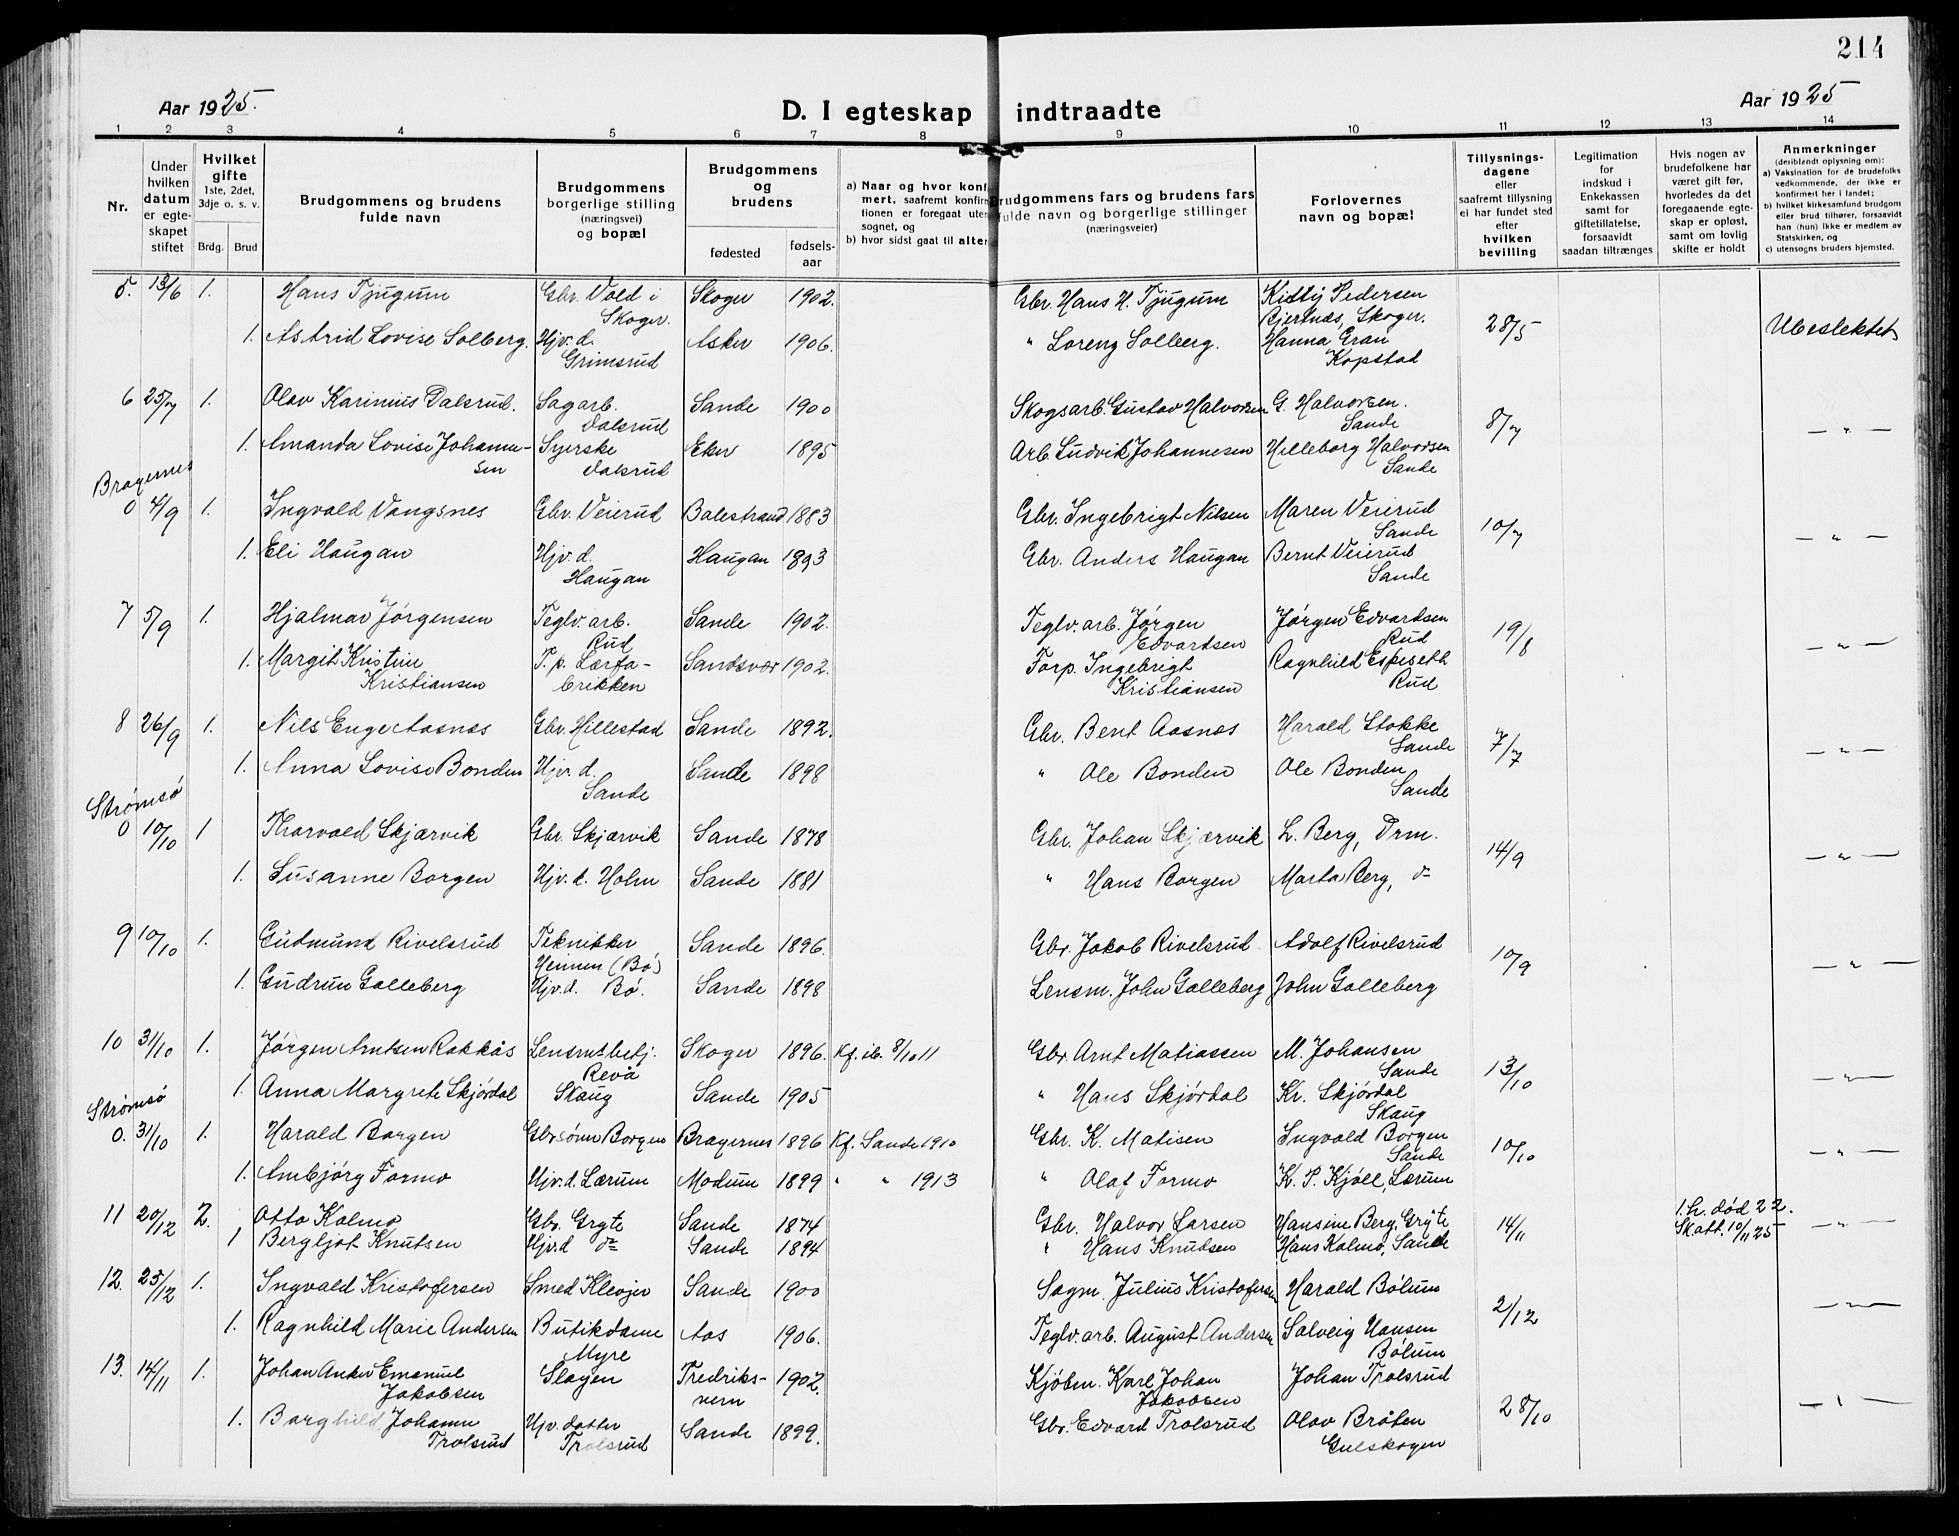 214
Aar 1925.
D. I egteskap indtraadte
Aar 1925
1 2 3 4 5 6 7 8 9 10 11 12 13 14
Nr.
Under hvilken datum er egteskapet stiftet
Hvilket gifte 1ste, 2det, 3dje o. s. v.
Brdg. Brud
Brudgommens og brudens fulde navn
Brudgommens borgerlige stilling (næringsvei) og bopæl
Brudgommens og brudens
fødested
fødsels-aar
a) Naar og hvor konf
mert, saafremt konfir
tionen er foregaat uten
sognet, og
b) hvor sidst gaat til alter
Brudgommens fars og brudens fars
fulde navn og borgerlige stillinger
(næringsveier)
Forlovernes navn og bopæl
Tillysnings-dagene eller saafremt tillysning ei har fundet sted efter hvilken bevilling
Legitimation for indskud i Enkekassen samt for giftetillatelse, forsaavidt saadan tiltrænges
Hvis nogen av brudefolkene har været gift før, hvorledes da det foregaaende egteskap er opløst, samt om lovlig skifte er holdt
Anmerkninger
(deriblandt oplysning om):
a) Vaksination for de brudefolks vedkommende, der ikke er konfirmert her i landet;
b) hvilket kirkesamfund brudgom eller brud tilhører, forsaavidt han (hun) ikke er medlem av Statskirken, og
c) utensogns bruders hjemsted.
5. 13/6 1. Hans Tjugum Gbr. Vold i Skoger. Skoger 1902. Gbr. Hans H. Tjugum Kitty Pedersen Gjertnæs, Skoger. 28/5 Ubeslektet
1. Astrid Lovise Solberg. Hjv. d. Grimsrud Asker 1906. " Loreng Solberg. Hanna Gran Kopstad
6 25/7 1. Olav Karinius Dalsrud. Sagarb. Dalsrud Sande 1900 Skogsarb. Gustav Halvorsen G. Halvorsen. Sande 8/7 — " —
1. Amanda Lovise Johannesen Syerske Dalsrud Eker 1895 Arb. Ludvik Johannesen Hilleborg Halvorsen Sande
Bragernes
0 4/9 1. Ingvald Vangsnes Gbr. Veierud Balestrand 1883 Gbr. Ingebrigt Nilsen Maren Veierud Sande 10/7 — " —
1. Eli Haugan Hjv. d. Haugan Haugan 1893 Gbr. Anders Haugan Bernt Veierud Sande
7 5/9 1. Hjalmar Jørgensen Teglv. arb. Rud Sande 1902. Teglv. arb. Jørgen Edvardsen Jørgen Edvardsen Rud 19/8 — " —
1. Margit Kristine Kristiansen T. p. Lærfabrikken Sandsvær 1902. Forp. Ingebrigt Kristiansen Ragnhild Espeseth Rud
8 26/9 1. Nils Enger Aasnes Gbr. Hillestad Sande 1892. Gbr. Bent Aasnes Harald Stokke Sande 7/7 — " —
1. Anna Lovise Bonden Hjv. d. Sande Sande 1898 " Ole Bonden Ole Bonden Sande
Strømsø
0 10/10 1 Thorvald Skjærvik Gbr. Skjærvik Sande 1878 Gbr. Johan Skjærvik L. Berg, Drm. 14/9 — " —
1. Susanne Borgen Hjv. d. Holm Sande 1881 " Hans Borgen Marta Berg, do
9 10/10 1. Gudmund Rivelsrud Teknikker Heimen (Bø) Sande 1896. Gbr. Jakob Rivelsrud Adolf Rivelsrud 10/9 — " —
1. Gudrun Galleberg Hjv. d. Bø. Sande 1898 Lensm. John Galleberg John Galleberg
10 31/10 1. Jørgen Arntsen Rakkås Lensmbetj. Revå Skoger 1896. Kf. ib. 8/10 11 Gbr. Arnt Matiassen M. Johansen Sande 13/10 — " —
1. Anna Margrete Skjørdal Skaug Sande 1905 " Hans Skjørdal Kr. Skjørdal Skaug
Strømsø
0. 31/10 1. Harald Borgen Gbrsønn Borgen Bragernes 1896 Kf. Sande 1910 Gbr. K. Matisen Ingvald Borgen Sande 10/10 — " —
1. Ambjørg Formo Hjv. d. Lærum Modum 1899 " " 1913 " Olaf Formo K. P. Kjøll, Lærum
11 20/12 2. Otto Kalmo Gbr. Gryte Sande 1874 Gbr. Halvor Larsen Hansine Berg, Gryte 14/11 1. h. død 22. Skatt. 19/11 25 — " —
1 Bergljot Knutsen Hjv. d do Sande 1894 " Hans Knudsen Hans Kalmo, Sande
12. 25/12 1. Ingvald Kristofersen Smed Klevjer Sande 1900 Sagm. Julius Kristofersen Harald Bølum 2/12 — " —
1. Ragnhild Marie Andersen Butikdame Myre Aas 1906. Teglv. arb. August Andersen Solveig Hansen Bølum
13. 14/11 1. Johan Anker Emanuel Jakobsen Slagen Fredriksvern 1902. Kjøbm. Karl Johan Jakobsen Johan Trolsrud 28/10 — " —
1. Borghild Johanne Trolsrud Hjv. datter Trolsrud Sande 1899. Gbr. Edvard Trolsrud Olav Bråten Gulskogen